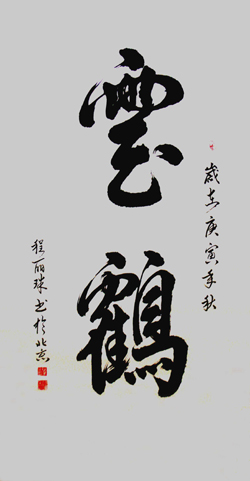 歲在庚寅年秋
雲鶴
程丽珠书於北京